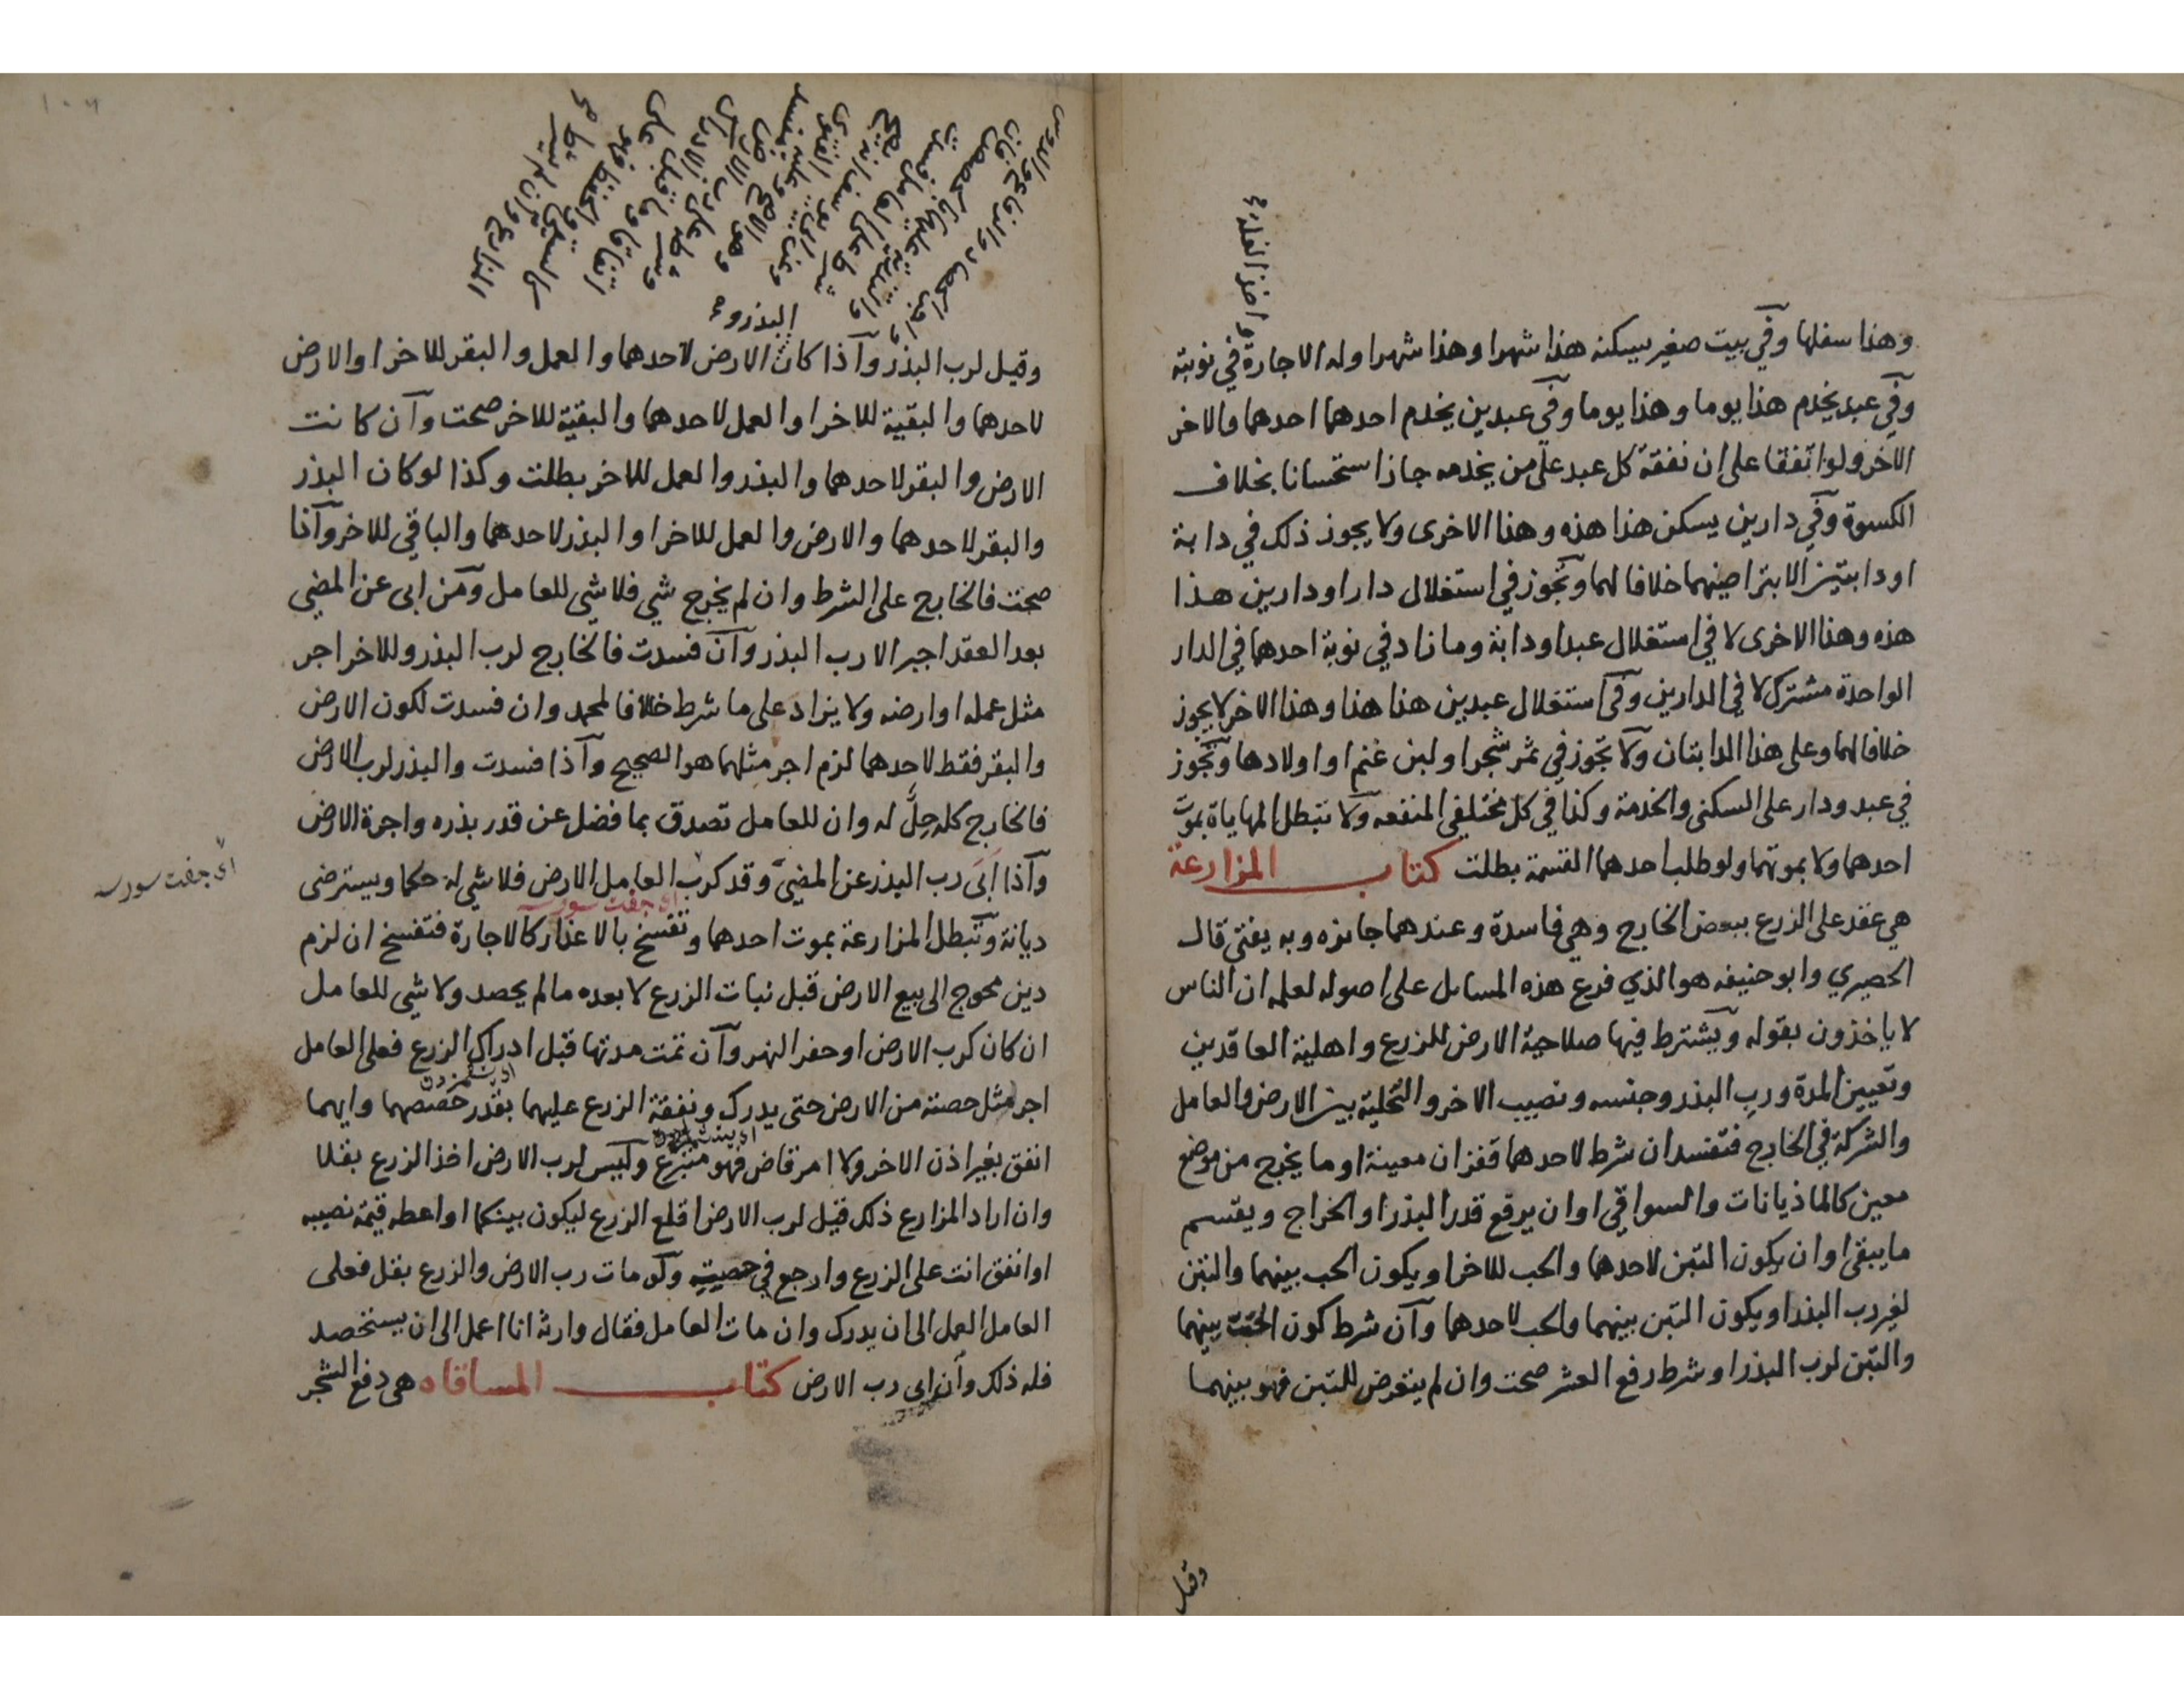 واخذ الغلة صح
وهذا سفلها وفي بيت صغير يسكنه هذا شهرا وهذا شهرا وله الاجارة في نوبته
وفي عبد يخدم هذا يوما وهذا يوما وفي عبدين يخدم احدهما احدهما والاخر
الاخر ولو اتفقا على ان نفقة كل عبد على من يخدمه جاز استحسانا بخلاف
الكسوة وفي دارين يسكن هذا هذه وهذا الاخرى ولا يجوز ذلك في دابة
او دابتين الا بتراضيهما خلافا لهما وتجوز في استغلال دار او دارين هذا
هذه وهذا الاخرى لا في استغلال عبد او دابة وما زاد في نوبة احدهما في الدار
الواحدة مشترك لا في الدارين وفي استغلال عبدين هذا هذا وهذا الاخر لا يجوز
خلافا لهما وعلى هذا الدابتان ولا تجوز في ثمر شجر او لبن غنم او اولادها وتجوز
في عبد ودار على السكنى والخدمة وكذا في كل مختلفي المنفعه ولا تبطل المهاياة بموت
احدهما ولا بموتهما ولو طلب احدهما القسمة بطلت كتاب المزارعة
هي عقد على الزرع ببعض الخارج وهي فاسدة وعندهما جائزه وبه يفتى قال
الحصيري وابو حنيفه هو الذي فرع هذه المسايل على اصوله لعلمه ان الناس
لا ياخذون بقوله ويشترط فيها صلاحية الارض للزرع واهلية العاقدين
وتعيين المدة ورب البذر وجنسه ونصيب الاخر والتخلية بين الارض والعامل
والشركة في الخارج فتفسد ان شرط لاحدهما قفزان معينة او ما يخرج من موضع
معين كالماذيانات والسواقي او ان يرفع قدر البذر او الخراج ويقتسم
ما يبقى او ان يكون التبن لاحدهما والحب للاخر او يكون الحب بينهما والتبن
لغير رب البذر او يكون التبن بينهما والحب لاحدهما وآن شرط كون الحب بينهما
والتبن لرب البذر او شرط رفع العشر صحت وان لم يتعرض للتبن فهو بينهما
وقيل
البذر و صح
وقيل لرب البذر وآذا كان الارض لاحدهما والعمل والبقر للاخر او الارض
لاحدهما والبقية للاخر او العمل لاحدهما والبقية للاخر صحت وآن كانت
الارض والبقر لاحدهما والبذر والعمل للاخر بطلت وكذا لو كان البذر
والبقر لاحدهما والارض والعمل للاخر او البذر لاحدهما والباقي للاخر وآذا
صحت فالخارج على الشرط وان لم يخرج شي فلا شي للعامل ومن ابى عن المضي
بعد العقد اجبر الا رب البذر وآن فسدت فالخارج لرب البذر وللاخر اجر
مثل عمله او ارضه ولا يزاد على ما شرط خلافا لمحمد وان فسدت لكون الارض
والبقر فقط لاحدهما لزم اجر مثلهما هو الصحيح وآذا فسدت والبذر لرب الارض
فالخارج كله حِلٌّ له وان للعامل تصدق بما فضل عن قدر بذره واجرة الارض
وآذا ابَى رب البذر عن المضيّ وقد كرب العامل الارض فلا شي له حكما ويسترضى
اى جفت سورسه
اى جفت سورسه
ديانة وتبطل المزارعة بموت احدهما وتفسخ بالاعذار كالاجارة فتفسخ ان لزم
دين محوج الى بيع الارض قبل نبات الزرع لا بعده ما لم يحصد ولا شي للعامل
ان كان كرب الارض او حفر النهر وآن تمت مدتها قبل ادراك الزرع فعلى العامل
اجر مثل حصته من الارض حتى يدرك ونفقة الزرع عليهما بقدر حصصهما وايهما
انفق بغير اذن الاخر ولا امر قاض فهو متبرع وليس لرب الارض اخذ الزرع بقلا
وان اراد المزارع ذلك قيل لرب الارض اقلع الزرع ليكون بينكما او اعطه قيمة نصيبه
او انفق انت على الزرع وارجع في حصته ولو مات رب الارض والزرع بقل فعلى
العامل العمل الى ان يدرك وان مات العامل فقال وارثه انا اعمل الى ان يستحصد
فله ذلك وآن ابى رب الارض كتاب المساقاه هي دفع الشجر